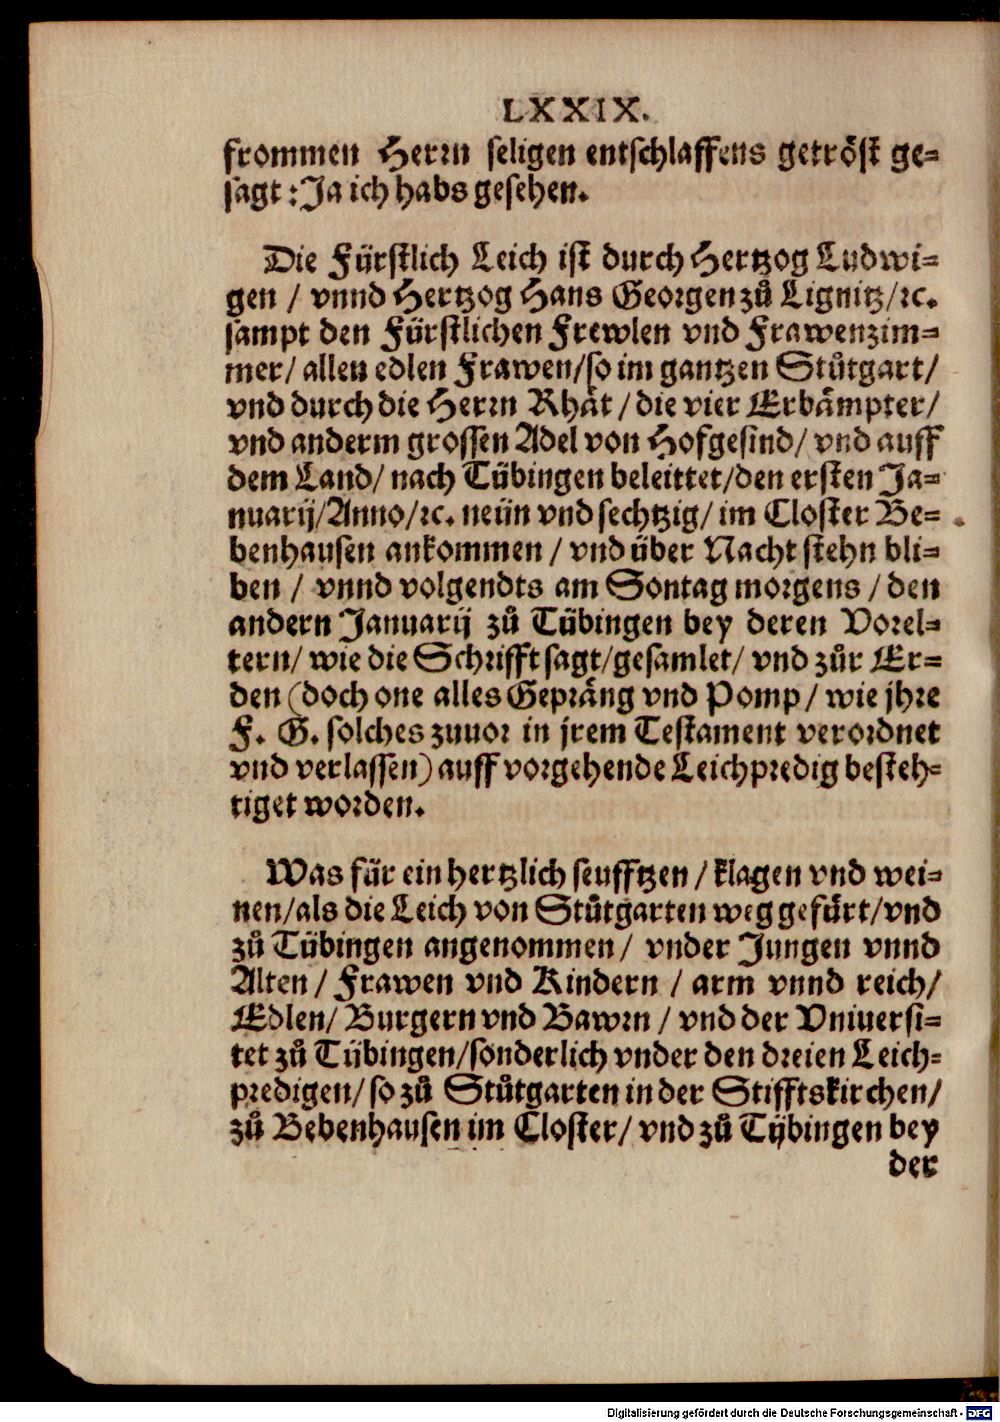 LXXIX.
frommen Herrn seligen entschlaffens getröst ge-
sagt: Ja ich habs gesehen.
Die Fürstlich Leich ist durch Hertzog Ludwi-
gen / vnnd Hertzog Hans Georgen zů Lignitz/ ꝛc.
sampt den Fürstlichen Frewlen vnd Frawenzim-
mer/ allen edlen Frawen/ so im gantzen Stůtgart/
vnd durch die Herrn Rhät / die vier Erbämpter/
vnd anderm grossen Adel von Hofgesind/ vnd auff
dem Land/ nach Tübingen beleittet/ den ersten Ja-
nuarij/ Anno/ ꝛc. neün vnd sechtzig/ im Closter Be-
benhausen ankommen / vnd über Nacht stehn bli-
ben / vnnd volgendts am Sontag morgens / den
andern Januarij zů Tübingen bey deren Vorel-
tern/ wie die Schrifft sagt/ gesamlet/ vnd zůr Er-
den (doch one alles Gepräng vnd Pomp/ wie jhre
F. G. solches zuuor in jrem Testament verordnet
vnd verlassen) auff vorgehende Leichpredig besteh-
tiget worden.
Was für ein hertzlich seufftzen / klagen vnd wei-
nen/ als die Leich von Stůtgarten weg gefürt/ vnd
zů Tübingen angenommen/ vnder Jungen vnnd
Alten / Frawen vnd Kindern / arm vnnd reich/
Edlen/ Burgern vnd Bawrn / vnd der Vniuersi-
tet zů Tübingen/ sonderlich vnder den dreien Leich-
predigen/ so zů Stůtgarten in der Stifftskirchen/
zů Bebenhausen im Closter/ vnd zů Tübingen bey
der
Digitalisierung gefördert durch die Deutsche Forschungsgemeinschaft - DFG